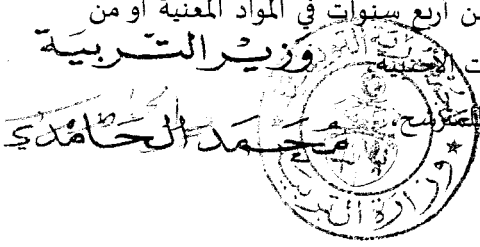 ن أربع سنوات في المواد المعنية أو من
وزير التربية
ت الأجنبية.
المترشح.
محمد الحامدي
وزارة التربية